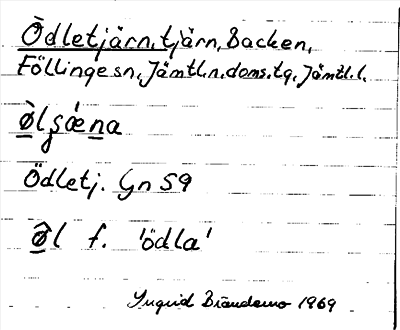 Ödletjärn, tjärn, Backen,
Föllinge sn, Jämtl. n. doms. tg, Jämtl. l.
ø̱̀lʂǽṉa
Ödletj. Gn 59
ø̱̂l f. 'ödla'
Ingrid Brändemo 1969